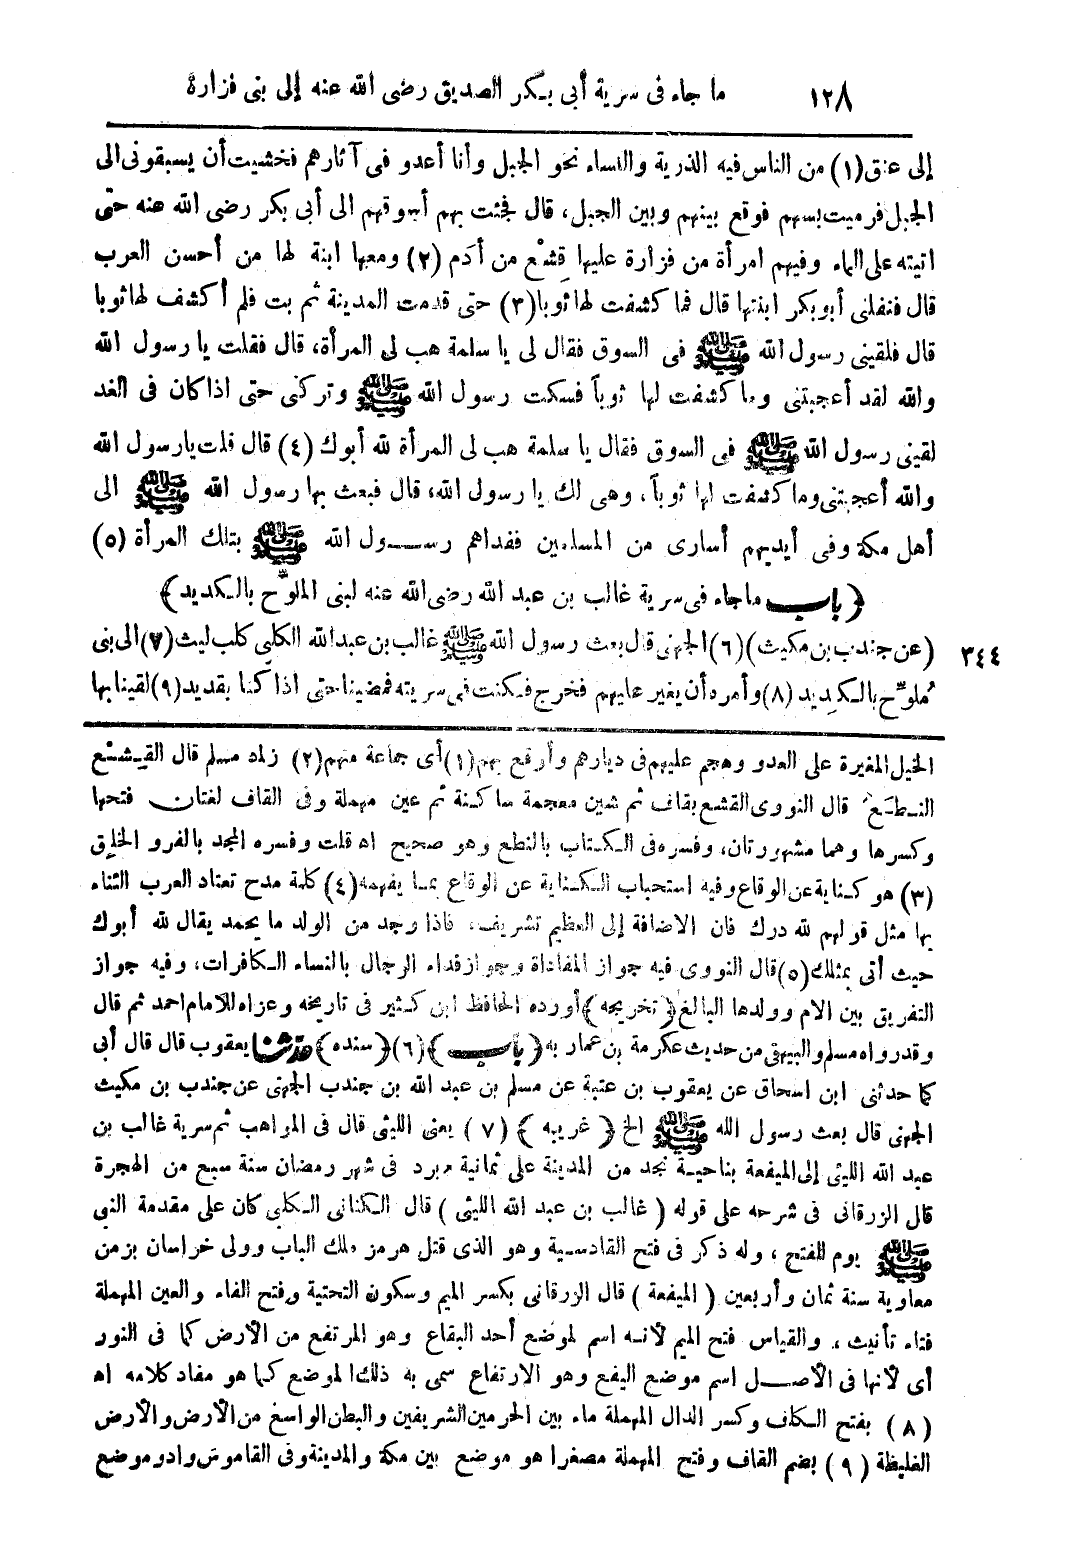 ١٢٨ ما جاء فى سرية أبى بكر الصديق رضى الله عنه إلى بنى فزارة
إلى عنق (١) من الناس فيه الذرية والنساء نحو الجبل وأنا أعدو فى آثارهم فخشيت أن يسبقونى الى
الجبل فرميت بسهم فوقع بينهم وبين الجبل، قال فجئت بهم أسوقهم الى أبى بكر رضى الله عنه حتى
اتيته على الماء وفيهم امرأة من فزارة عليها قِشْع من أدَم (٢) ومعها ابنة لها من أحسن العرب
قال فنفلنى أبو بكر ابنتها قال فما كشفت لها ثوبا (٣) حتى قدمت المدينة ثم بت فلم أكشف لها ثوبا
قال فلقينى رسول الله ﷺ فى السوق فقال لى يا سلمة هب لى المرأة، قال فقلت يا رسول الله
والله لقد أعجبتنى وما كشفت لها ثوباً فسكت رسول الله ﷺ وتركنى حتى اذا كان فى الغد
لقينى رسول الله ﷺ فى السوق فقال يا سلمة هب لى المرأة لله أبوك (٤) قال قلت يا رسول الله
والله أعجبتنى وما كشفت لها ثوباً، وهى لك يا رسول الله، قال فبعث بها رسول الله ﷺ الى
أهل مكة وفى أيديهم أسارى من المسلمين ففداهم رســـول الله ﷺ بتلك المرأة (٥)
﴿باب ما جاء فى سرية غالب بن عبد الله رضى الله عنه لبنى الملوّح بالكديد﴾
٣٤٤ (عن جندب بن مكيث) (٦) الجهنى قال بعث رسول الله ﷺ غالب بن عبد الله الكلبى كلب ليث (٧) الى بنى
مُلوّح بالكديد (٨) وأمره أن يغير عليهم فخرج فكنت فى سريته فمضينا حتى اذا كنا بقديد (٩) لقينا بها
الخيل المغيرة على العدو وهجم عليهم فى ديارهم وأوقع بهم (١) أى جماعة منهم (٢) زاد مسلم قال القِـشع
النـطـع قال النووى القشع بقاف ثم شين معجمة ساكنة ثم عين مهملة وفى القاف لغتان فتحها
وكسرها وهما مشهورتان، وفسره فى الكتاب بالنطع وهو صحيح اه قلت وفسره المجد بالفرو الخلِق
(٣) هو كناية عن الوقاع وفيه استحباب الكناية عن الوقاع بما يفهمه (٤) كلمة مدح تعتاد العرب الثناء
بها مثل قولهم لله درك فان الاضافة إلى العظيم تشريف، فاذا وجد من الولد ما يحمد يقال لله أبوك
حيث أتى بمثلك (٥) قال النووى فيه جواز المفاداة وجواز فداء الرجال بالنساء الكافرات، وفيه جواز
التفريق بين الام وولدها البالغ ﴿تخريجه﴾ أورده الحافظ ابن كثير فى تاريخه وعزاه للامام احمد ثم قال
وقد رواه مسلم والبيهقى من حديث عكرمة بن عمار به ﴿باب﴾ (٦) ﴿سنده﴾ حدثنا يعقوب قال قال أبى
كما حدثنى ابن اسحاق عن يعقوب بن عتبة عن مسلم بن عبد الله بن جندب الجهنى عن جندب بن مكيث
الجهنى قال بعث رسول الله ﷺ الخ ﴿غريبه﴾ (٧) يعنى الليثى قال فى المواهب ثم سرية غالب بن
عبد الله الليثى إلى الميفعة بناحيـة نجد من المدينة على ثمانية برد فى شهر رمضان سنة سبع من الهجرة
قال الزرقانى فى شرحه على قوله (غالب بن عبد الله الليثى) قال الكنانى الكلبى كان على مقدمة النبى
ﷺ يوم الفتح، وله ذكر فى فتح القادسية وهو الذى قتل هرمز ملك الباب وولى خراسان بزمن
معاوية سنة ثمان وأربعين (الميفعة) قال الزرقانى بكسر الميم وسكون التحتية وفتح الفاء والعين المهملة
فتاء تأنيث، والقياس فتح الميم لأنـه اسم لموضع أحد البقاع وهو المرتفع من الأرض كما فى النور
أى لأنها فى الأصـــل اسم موضع اليفع وهو الارتفاع سمى به ذلك الموضع كما هو مفاد كلامه اه
(٨) بفتح الكاف وكسر الدال المهملة ماء بين الحرمين الشريفين والبطن الواسع من الأرض والأرض
الغليظة (٩) بضم القاف وفتح المهملة مصغرا هو موضع بين مكة والمدينة وفى القاموس وادو موضع